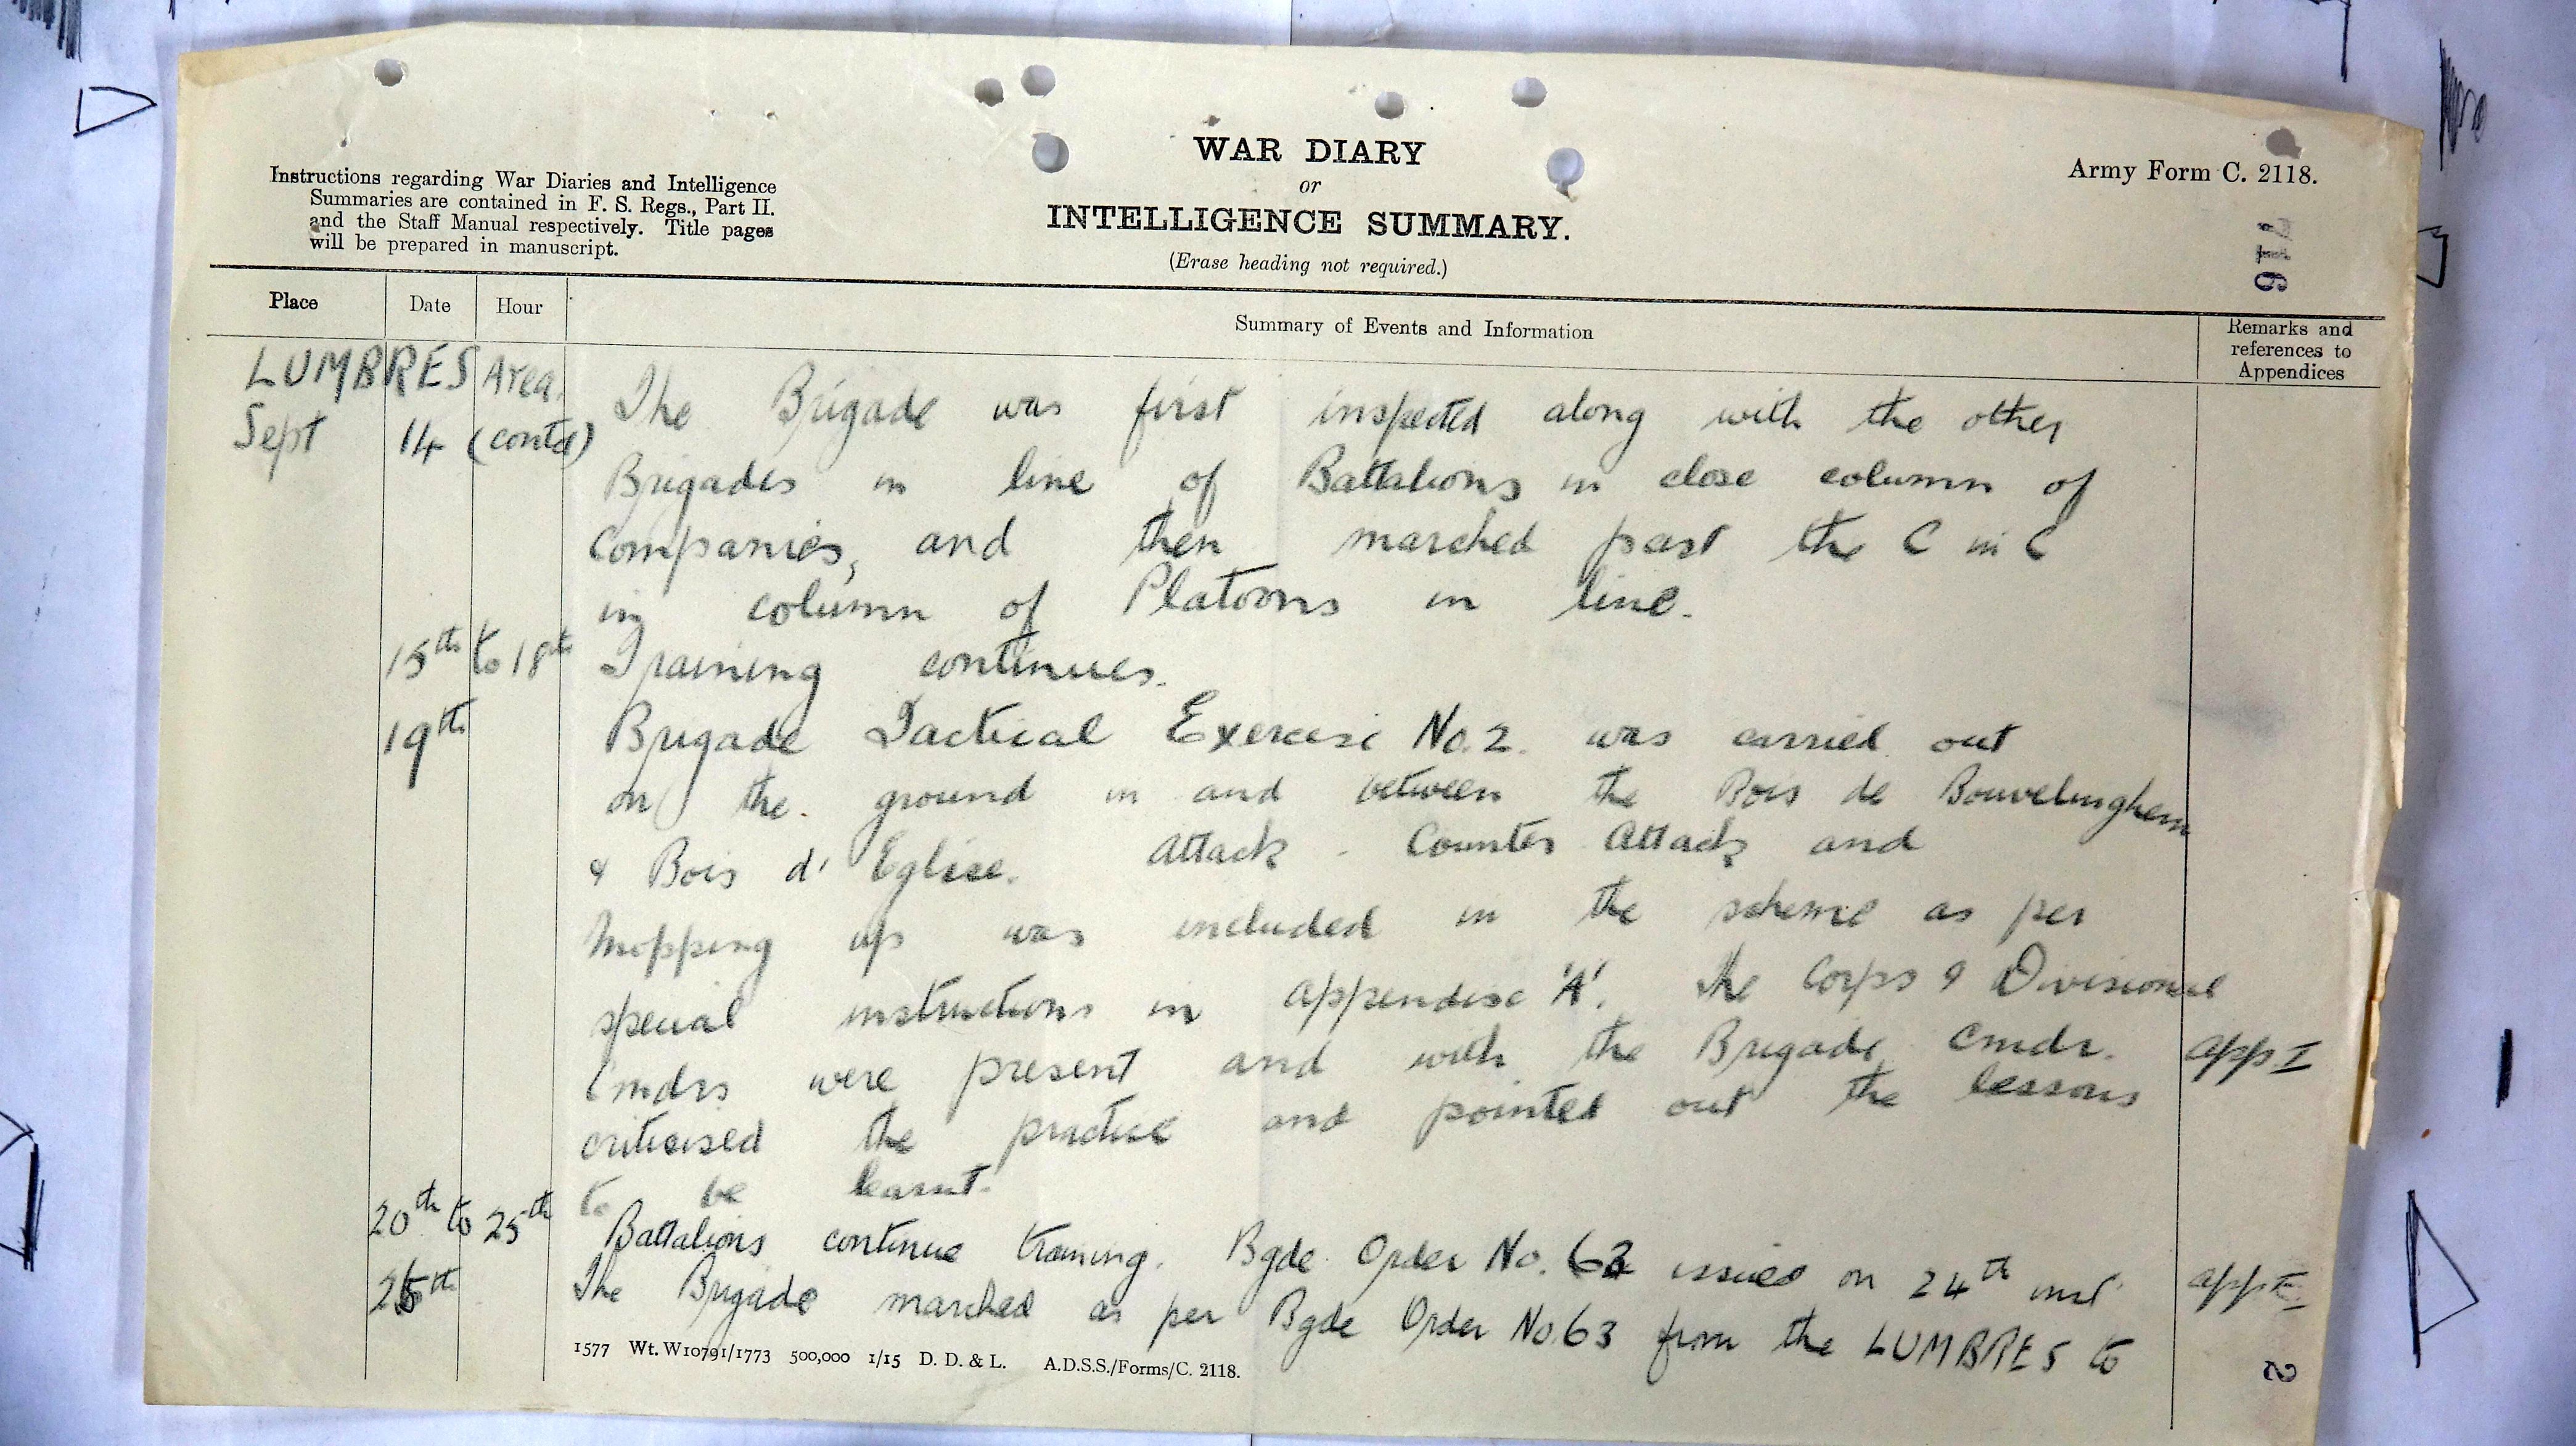 WAR DIARY
or
INTELLIGENCE SUMMARY.
(Erase heading not required.)
Instructions regarding War Diaries and Intelligence
Summaries are contained in F. S. Regs., Part II.
and the Staff Manual respectively. Title pages
will be prepared in manuscript.
Army Form C. 2118.
716
Place Date Hour Summary of Events and Information Remarks and
references to
Appendices
LUMBRES Area.
Sept 14 (contd) The Brigade was first inspected along with the other
Brigades in line of Battalions in close column of
Companies, and then marched past the C in C
in column of Platoons in line.
15th to 18th Training continues.
19th Brigade Tactical Exercise No. 2. was carried out
on the ground in and between the Bois de Bouvelinghem
& Bois d' Eglise. Attack - Counter Attack and
Mopping up was included in the scheme as per
special instructions in appendix 'A'. The Corps & Divisional
Cmdrs were present and with the Brigade Cmdr. App I
criticised the practice and pointed out the lessons
to be learnt.
20th to 25th Battalions continue training. Bgde Order No. 63 issued on 24th inst App II
25th The Brigade marched as per Bgde Order No. 63 from the LUMBRES to
1577 Wt. W10791/1773 500,000 1/15 D. D. & L. A.D.S.S./Forms/C. 2118.
2